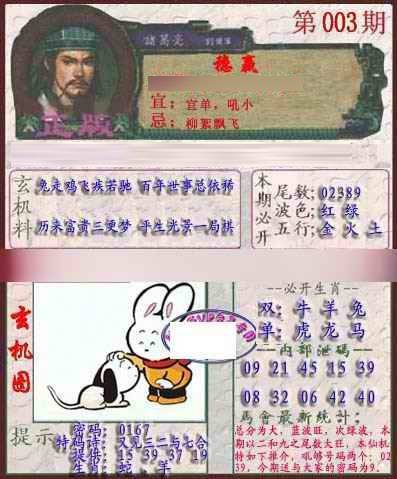 第003期
諸葛亮
稳赢
宜：宜单，吼小
忌：柳絮飘飞
正版
玄机料
兔走鸡飞疾若驰 百年世事总依稀
历来富贵三更梦 平生光景一局棋
本期必开
尾数:02389
波色:红 绿
五行:金 火 土
玄机图
--必开生肖--
双:牛 羊 兔
单:虎 龙 马
--内部泄码--
09 21 45 15 39
08 32 06 42 40
馬會最新統計:
总分为大，蓝波旺，次绿波，本期以二和九之尾数大旺，本仙机特如下推介，吼够号码两个：02 39，今期送与大家的密码为9．
提示
密码: 0167
特码诗: 又见三一与七合
提供: 15 39 37 19
生肖: 蛇、羊